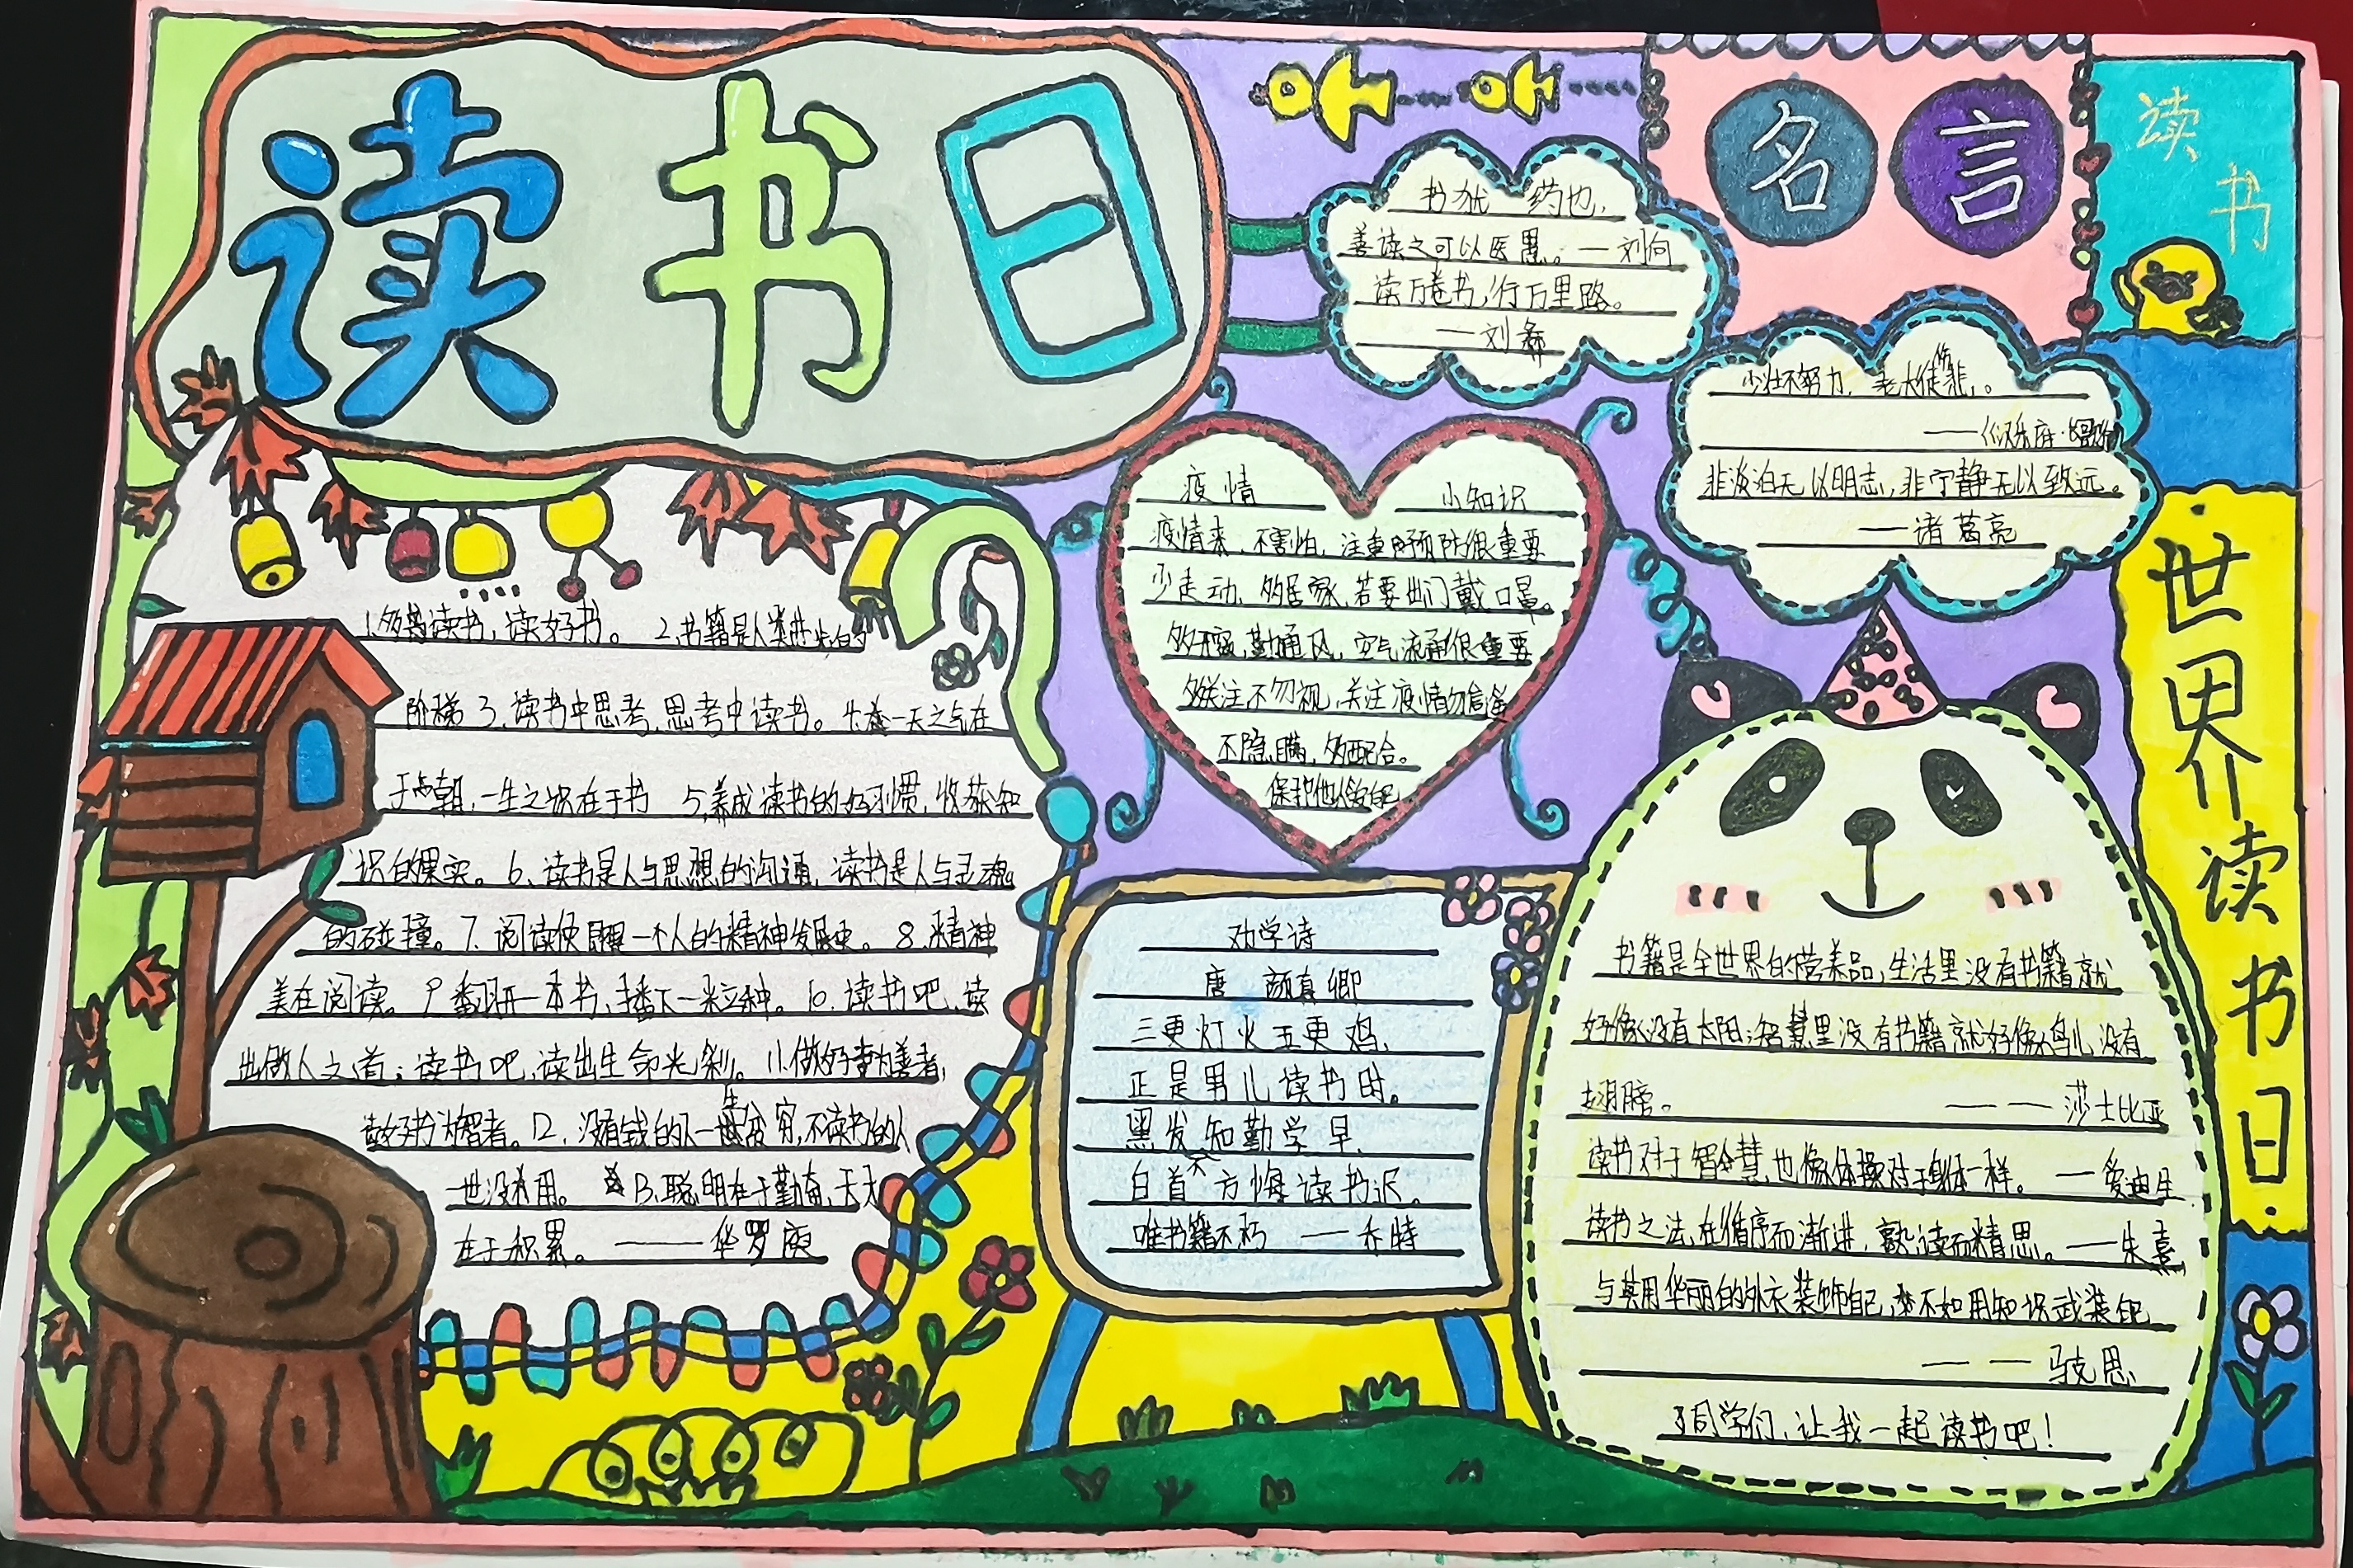 读书日
名言
读书
书犹药也,
善读之可以医愚。—刘向
读万卷书,行万里路。
—刘彝
少壮不努力, 老大徒伤悲,。
——《汉乐府·长歌行》
非淡泊无以明志,非宁静无以致远。
——诸葛亮
疫情 小知识
疫情来,不害怕,注重预防很重要
少走动,多居家,若要出门戴口罩。
多开窗,勤通风,空气流通很重要
多关注不忽视,关注疫情勿信谣
不隐瞒,多配合。
保护他人爱自己
1.多读书,读好书。 2.书籍是人类进步的
阶梯 3.读书中思考,思考中读书。4.一天之气在
于朝,一生之识在于书 5.养成读书的好习惯,收获知
识的果实。6、读书是人与思想的沟通,读书是人与灵魂
的碰撞。7.阅读使一个人的精神发展史。8.精神
美在阅读。9翻开一本书,播下一粒种。10.读书吧,读
出做人之道;读书吧,读出生命光彩。11.做好事为善者,
读好书为智者。12.没有钱的人一生贫穷,不读书的人
一世没有用。 13.聪明在于勤奋,天才
在于积累。 ———华罗庚
劝学诗
唐 颜真卿
三更灯火五更鸡,
正是男儿读书时。
黑发不知勤学早,
白首方悔读书迟。
唯书籍不朽 ——乔特
书籍是全世界的营养品,生活里没有书籍就
好像没有太阳;智慧里没有书籍就好像鸟儿没有
翅膀。 ——莎士比亚
读书对于智慧,也像体操对于身体一样。—爱迪生
读书之法,在循序而渐进,熟读而精思。——朱熹
与其用华丽的外衣装饰自己,不如用知识武装自己
——马克思
同学们,让我一起读书吧!
世界读书日